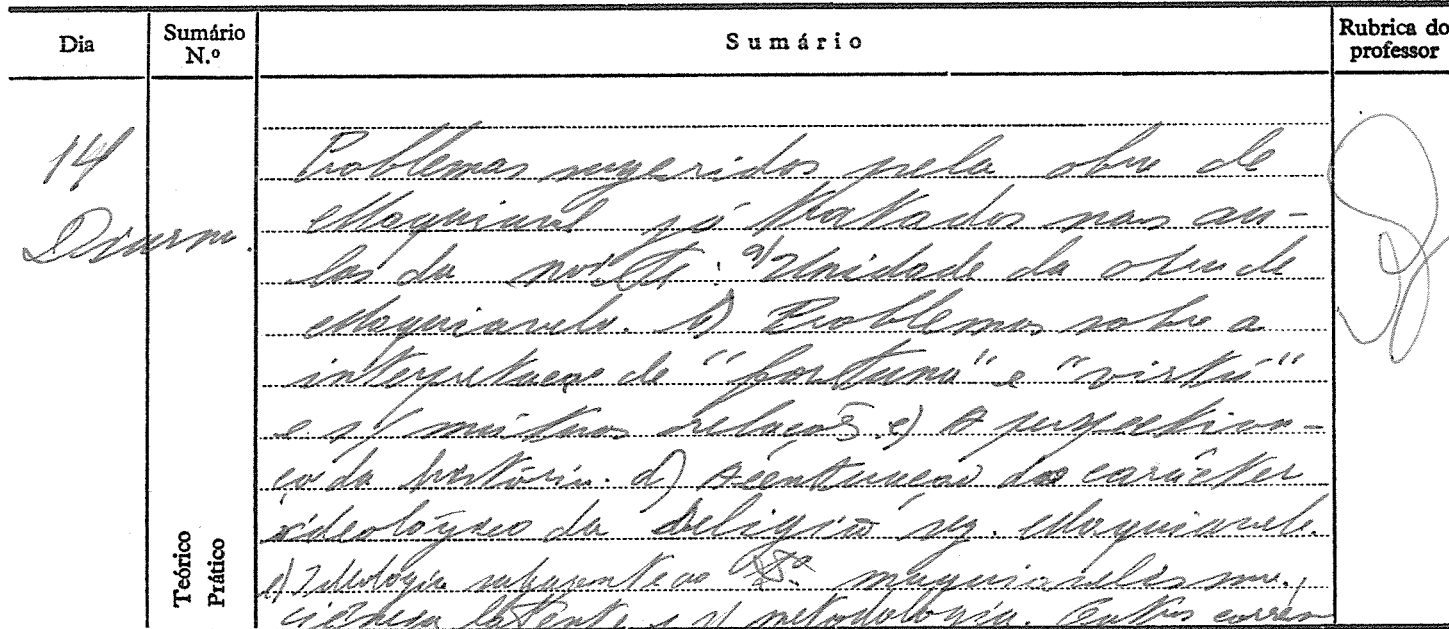 Dia
Sumário N.º
Sumário
Rubrica do professor
14
Diurno.
Problemas sugeridos pela obra de
Maquiavel já tratados nas au-
las da noite: a) Unidade da obra de
Maquiavelo. b) Problemas sobre a
interpretação de "fortuna" e "virtú"
e s/ mútuas relações c) A perspectiva-
ção da história. d) Acentuação do carácter
ideológico da Religião seg. Maquiavelo.
e) Ideologia subjacente ao maquiavelismo,
ciência latente e s/ metodologia. Outras
Teórico
Prático